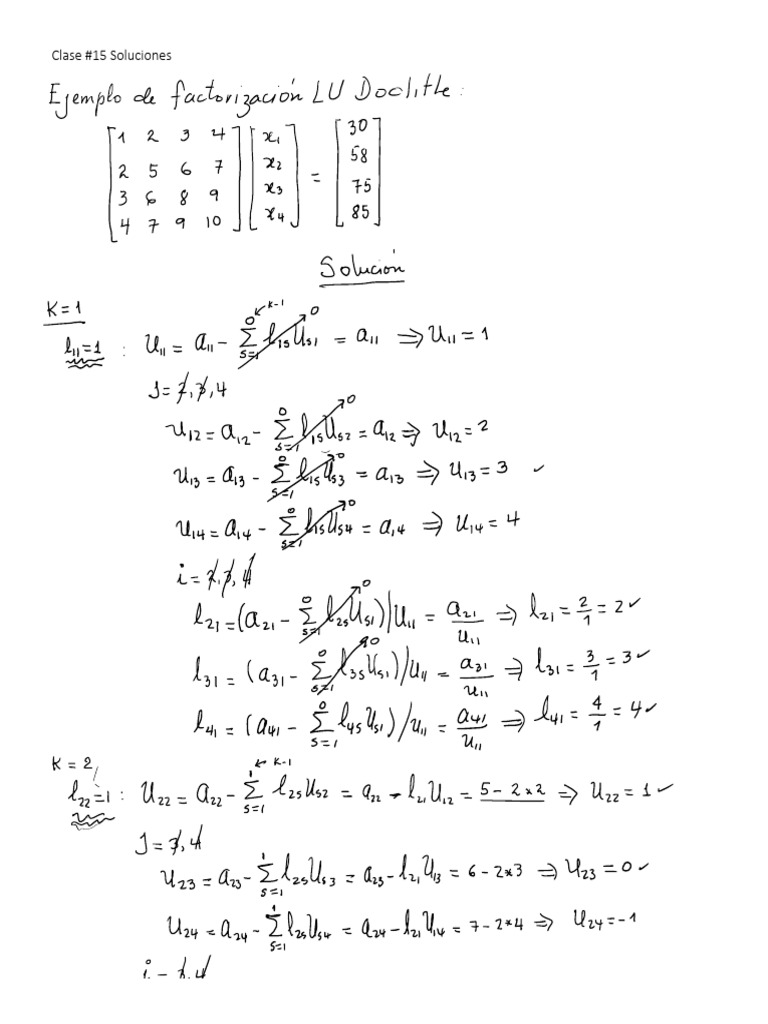 Clase #15 Soluciones
Ejemplo de factorización LU Doclitle:
[1 2 3 4] [x₁] = [30]
[2 5 6 7] [x₂] [58]
[3 6 8 9] [x₃] [75]
[4 7 9 10] [x₄] [85]
Solución
K=1
← K-1
l₁₁=1 : U₁₁ = a₁₁ - Σ_{s=1}^{0} l₁ₛUₛ₁ ↗0 = a₁₁ ⇒ U₁₁ = 1
J = 2, 3, 4
U₁₂ = a₁₂ - Σ_{s=1}^{0} l₁ₛUₛ₂ ↗0 = a₁₂ ⇒ U₁₂ = 2
U₁₃ = a₁₃ - Σ_{s=1}^{0} l₁ₛUₛ₃ ↗0 = a₁₃ ⇒ U₁₃ = 3 ✓
U₁₄ = a₁₄ - Σ_{s=1}^{0} l₁ₛUₛ₄ ↗0 = a₁₄ ⇒ U₁₄ = 4
i = 2, 3, 4
l₂₁ = (a₂₁ - Σ_{s=1}^{0} l₂ₛUₛ₁ ↗0)/U₁₁ = a₂₁/U₁₁ ⇒ l₂₁ = 2/1 = 2 ✓
l₃₁ = (a₃₁ - Σ_{s=1}^{0} l₃ₛUₛ₁ ↗0)/U₁₁ = a₃₁/U₁₁ ⇒ l₃₁ = 3/1 = 3 ✓
l₄₁ = (a₄₁ - Σ_{s=1}^{0} l₄ₛUₛ₁)/U₁₁ = a₄₁/U₁₁ ⇒ l₄₁ = 4/1 = 4 ✓
K = 2
← K-1
l₂₂=1 : U₂₂ = a₂₂ - Σ_{s=1}^{1} l₂ₛUₛ₂ = a₂₂ - l₂₁U₁₂ = 5 - 2*2 ⇒ U₂₂ = 1 ✓
J = 3, 4
U₂₃ = a₂₃ - Σ_{s=1}^{1} l₂ₛUₛ₃ = a₂₃ - l₂₁U₁₃ = 6 - 2*3 ⇒ U₂₃ = 0 ✓
U₂₄ = a₂₄ - Σ_{s=1}^{1} l₂ₛUₛ₄ = a₂₄ - l₂₁U₁₄ = 7 - 2*4 ⇒ U₂₄ = -1